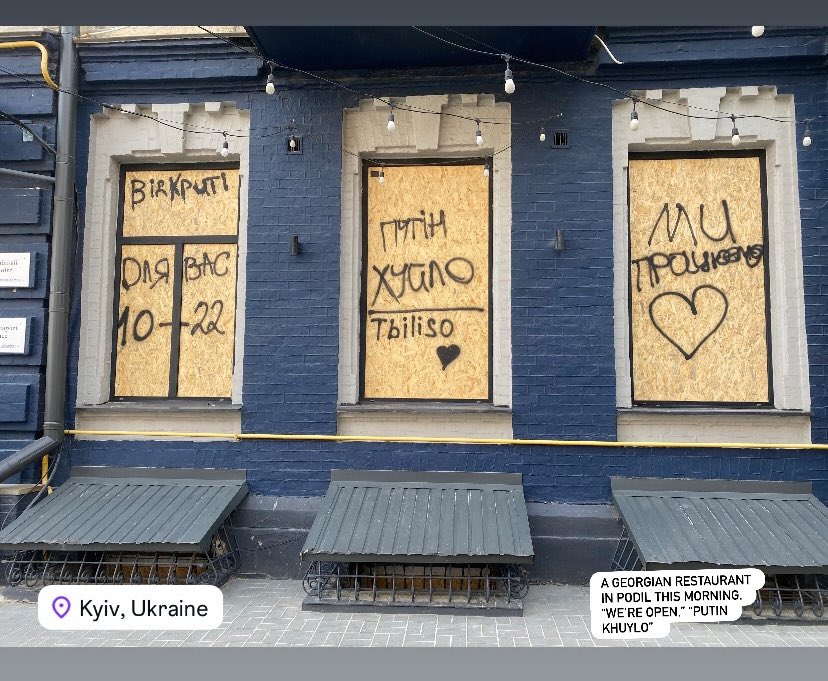 Відкриті
ДЛЯ ВАС
10-22
ПУТІН
ХУЙЛО
Tbiliso
МИ
ПРАЦЮЄМО
Kyiv, Ukraine
A GEORGIAN RESTAURANT
IN PODIL THIS MORNING.
"WE'RE OPEN." "PUTIN
KHUYLO"